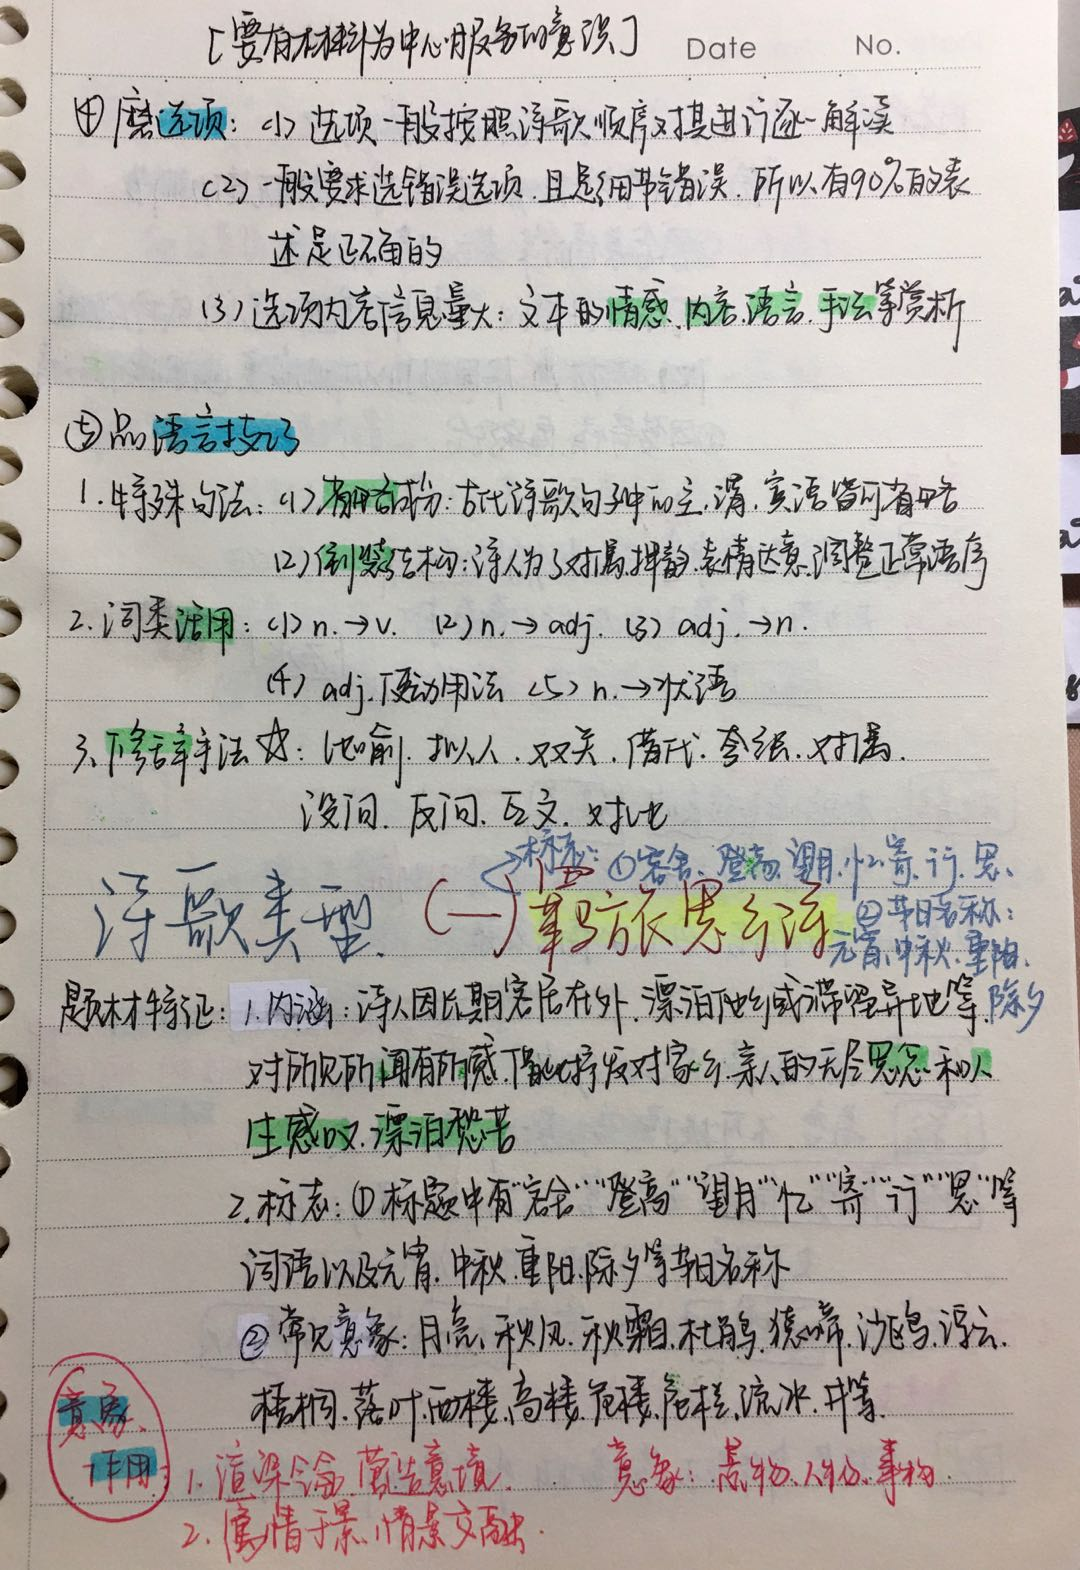 [要有材料为中心服务的意识]
Date No.
④磨选项：(1)选项一般按照诗歌顺序对其进行逐一解读
(2)一般要求选错误选项.且是细节错误.所以有90%的表
述是正确的
(3)选项内容信息量大：文本的情感.内容.语言.手法等赏析
⑤品语言技巧
1.特殊句法：(1)省略成份：古代诗歌句子中的主.谓.宾语皆可省略
(2)倒装结构：诗人为了对属.押韵.表情达意.调整正常语序
2.词类活用：(1)n.→v. (2)n.→adj. (3)adj.→n.
(4)adj.使动用法 (5)n.→状语
3.修辞手法☆：比喻.拟人.双关.借代.夸张.对属.
设问.反问.互文.对比
标志：①客舍.登高.望月.忆.寄.行.思.
诗歌类型.(一)羁旅思乡诗
②节日名称：
元宵.中秋.重阳.
除夕
题材特征：1.内涵：诗人因长期客居在外.漂泊他乡或滞留异地等.
对所见所闻有所感.借此抒发对家乡.亲人的无尽思念和人
生感叹.漂泊愁苦
2.标志：①标题中有“客舍”“登高”“望月”“忆”“寄”“行”“思”等
词语以及元宵.中秋.重阳.除夕等节日名称
②常见意象：月亮.秋风.秋霜.杜鹃.猿啼.沙鸥.浮云.
梧桐.落叶.西楼.高楼.危楼.危栏.流水.井等.
意象.
作用：
1.渲染气氛.营造意境.
意象：景物.人物.事物.
2.寓情于景.情景交融.